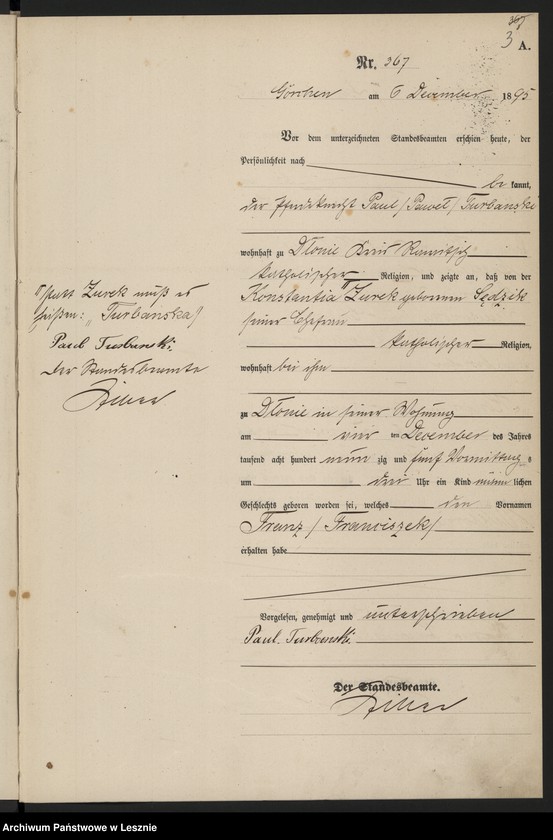 367
3 A.
Nr. 367
Görchen am 6 December 1895
Vor dem unterzeichneten Standesbeamten erschien heute, der
Persönlichkeit nach
be kannt,
der Pferdeknecht Paul /Paweł/ Turbanski
wohnhaft zu Dlonie Kreis Rawitsch
katholischer Religion, und zeigte an, daß von der
Konstantia Zurek geborenen Sędzik
seiner Ehefrau
katholischer Religion,
wohnhaft bei ihm
zu Dlonie in seiner Wohnung
am vier ten December des Jahres
tausend acht hundert neun zig und fünf Vormittags
um drei Uhr ein Kind männlichen
Geschlechts geboren worden sei, welches den Vornamen
Franz /Franciszek/
erhalten habe
Vorgelesen, genehmigt und unterschrieben
Paul Turbanski
Der Standesbeamte.
statt Zurek muß es
heißen: „Turbanska"
Paul Turbanski.
Der Standesbeamte
Archiwum Państwowe w Lesznie